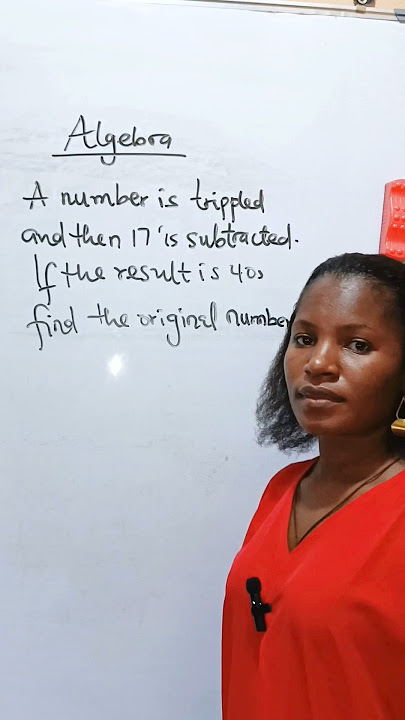 Algebra
A number is trippled
and then 17 is subtracted.
If the result is 40,
find the original number